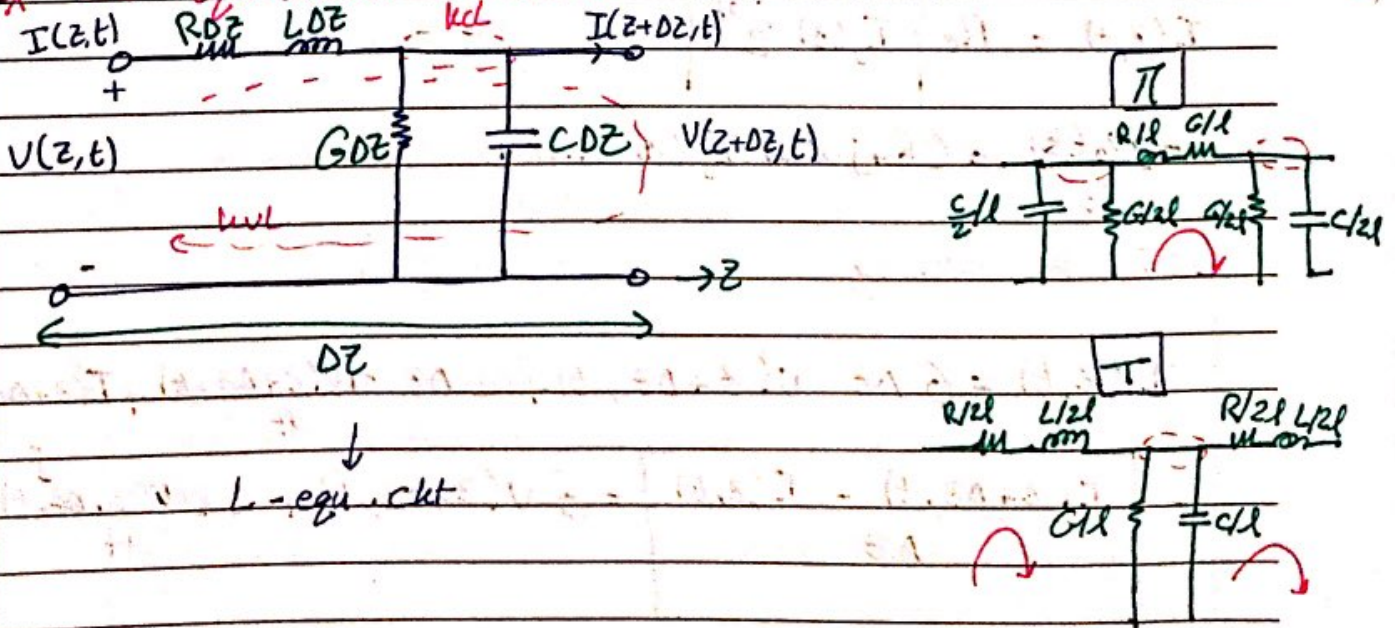 I(Z,t) RDZ LDZ KCL I(Z+DZ,t)
+
V(Z,t) GDZ CDZ V(Z+DZ,t)
KVL
-
→Z
DZ
↓
L-equ.ckt
π
R/l G/l
C/2/l G/2l G/2l C/2l
T
R/2l L/2l R/2l L/2l
G/l C/l